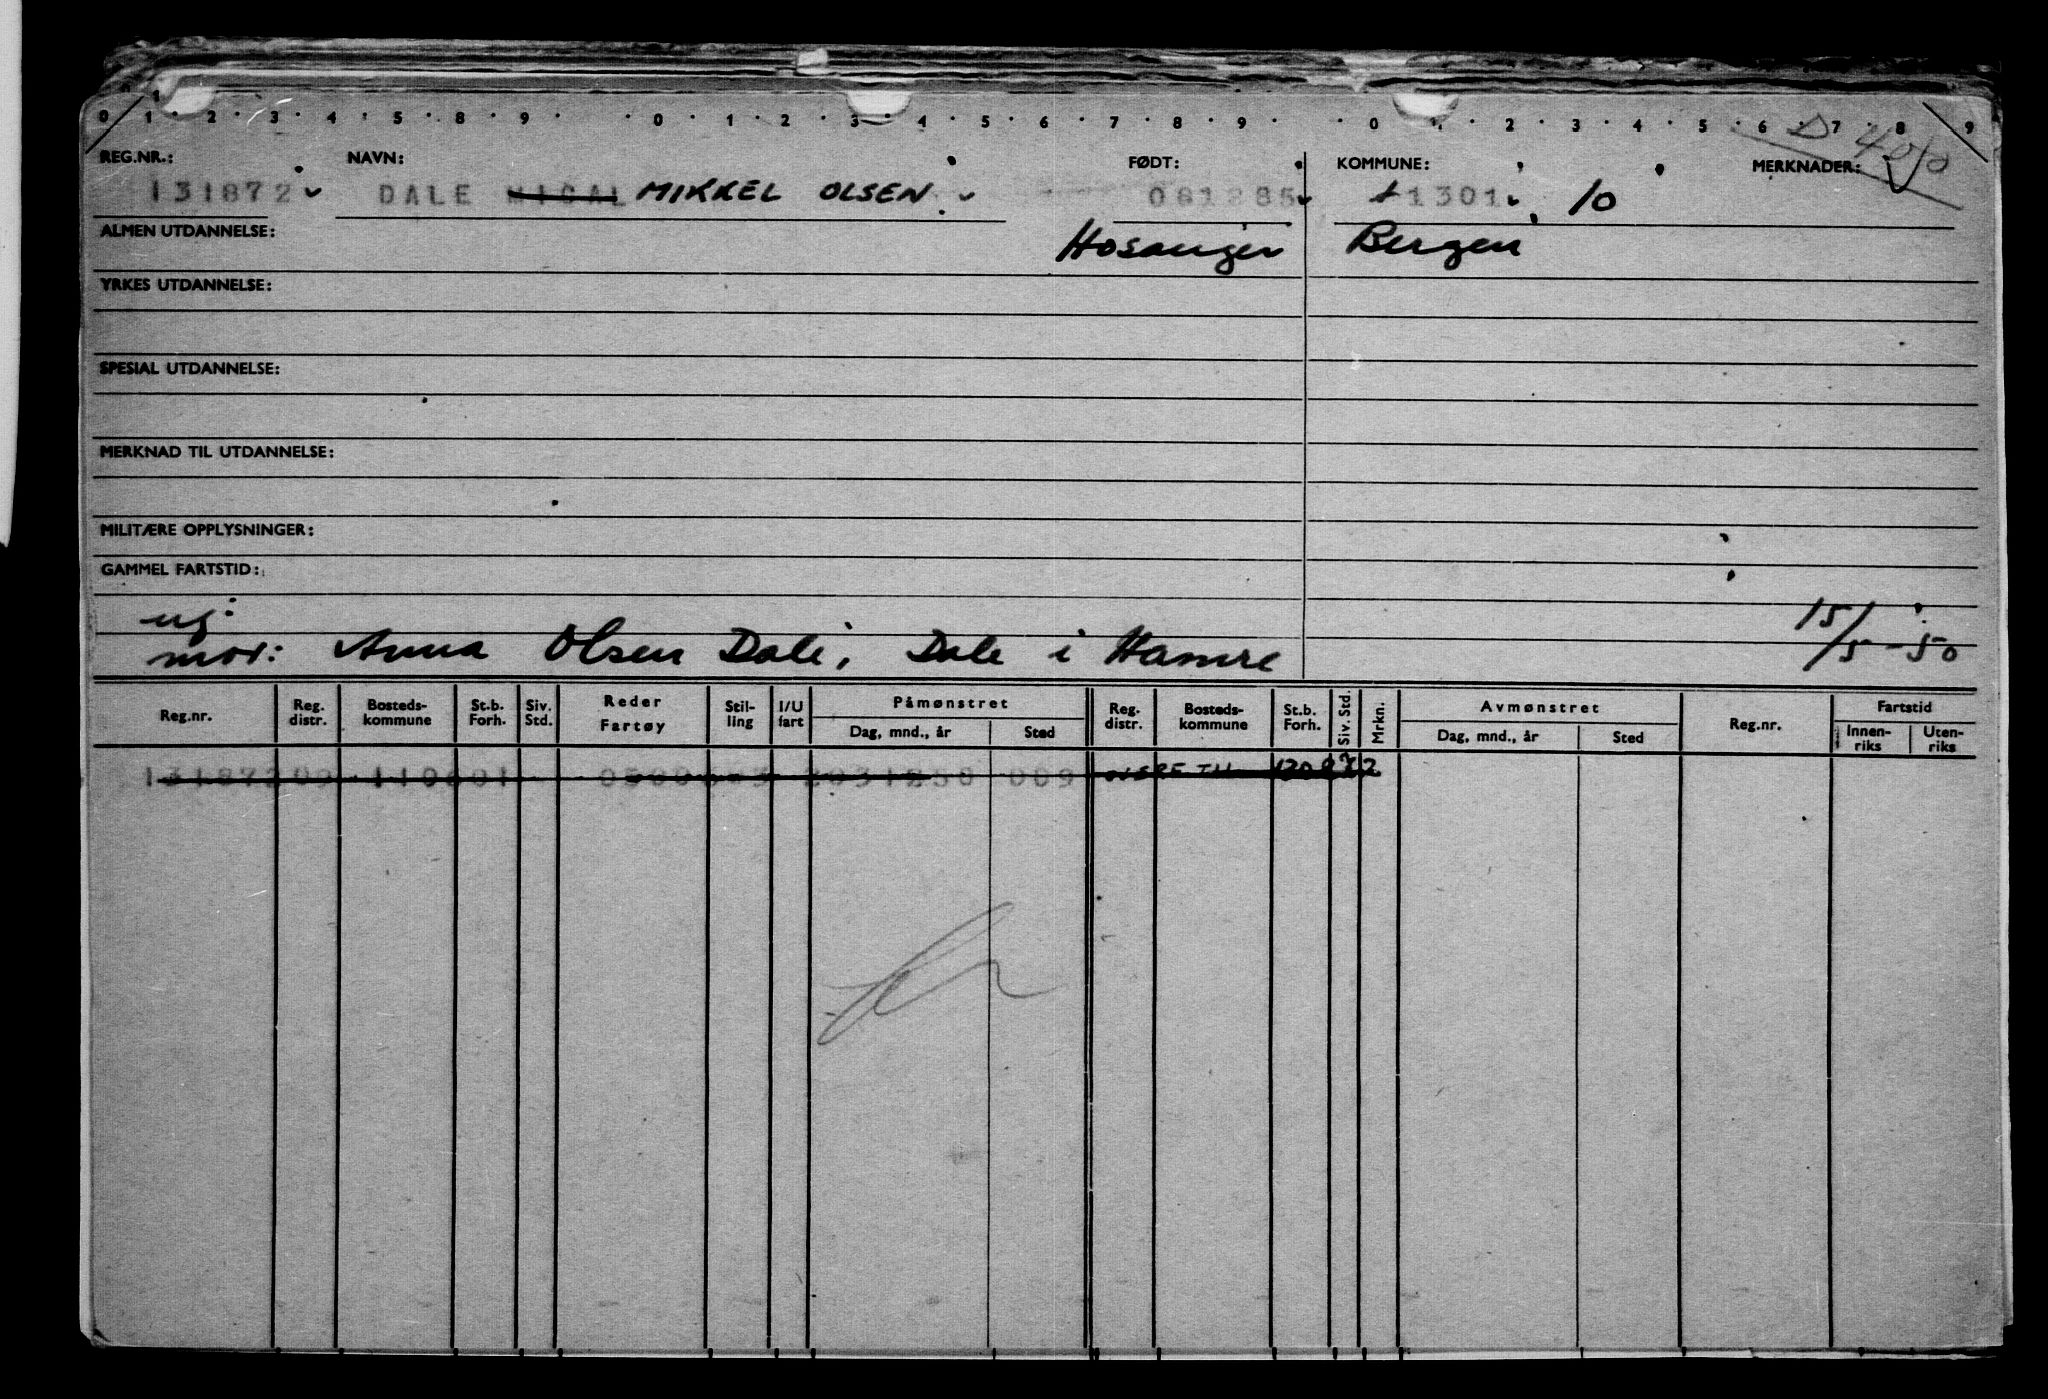 0 1 2 3 4 5 8 9 0 1 2 3 4 5 6 7 8 9 0 1 2 3 4 5 6 7 8 9
REG.NR.: NAVN: FØDT: KOMMUNE: MERKNADER:
131872 DALE MICAL MIKKEL OLSEN 081285 1301 10
ALMEN UTDANNELSE: Hosanger Bergen
YRKES UTDANNELSE:
SPESIAL UTDANNELSE:
MERKNAD TIL UTDANNELSE:
MILITÆRE OPPLYSNINGER:
GAMMEL FARTSTID:
ug: 15/5-50
mor: Anna Olsen Dale, Dale i Hamre
Reg.nr. Reg. distr. Bosteds-kommune St.b. Forh. Siv. Std. Reder Fartøy Stil-ling I/U fart Påmønstret Dag, mnd., år Sted Reg. distr. Bosteds-kommune St.b. Forh. Siv. Std. Mrkn. Avmønstret Dag, mnd., år Sted Reg.nr. Fartstid Innen-riks Uten-riks
009